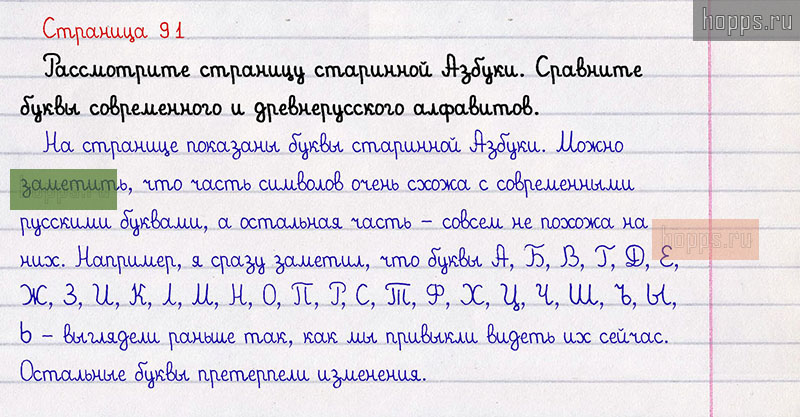 hopps.ru
Страница 91
Рассмотрите страницу старинной Азбуки. Сравните
буквы современного и древнерусского алфавитов.
На странице показаны буквы старинной Азбуки. Можно
заметить, что часть символов очень схожа с современными
русскими буквами, а остальная часть – совсем не похожа на
hopps.ru
них. Например, я сразу заметил, что буквы А, Б, В, Г, Д, Е,
Ж, З, И, К, Л, М, Н, О, П, Р, С, Т, Ф, Х, Ц, Ч, Ш, Ъ, Ы,
Ь – выглядели раньше так, как мы привыкли видеть их сейчас.
Остальные буквы претерпели изменения.